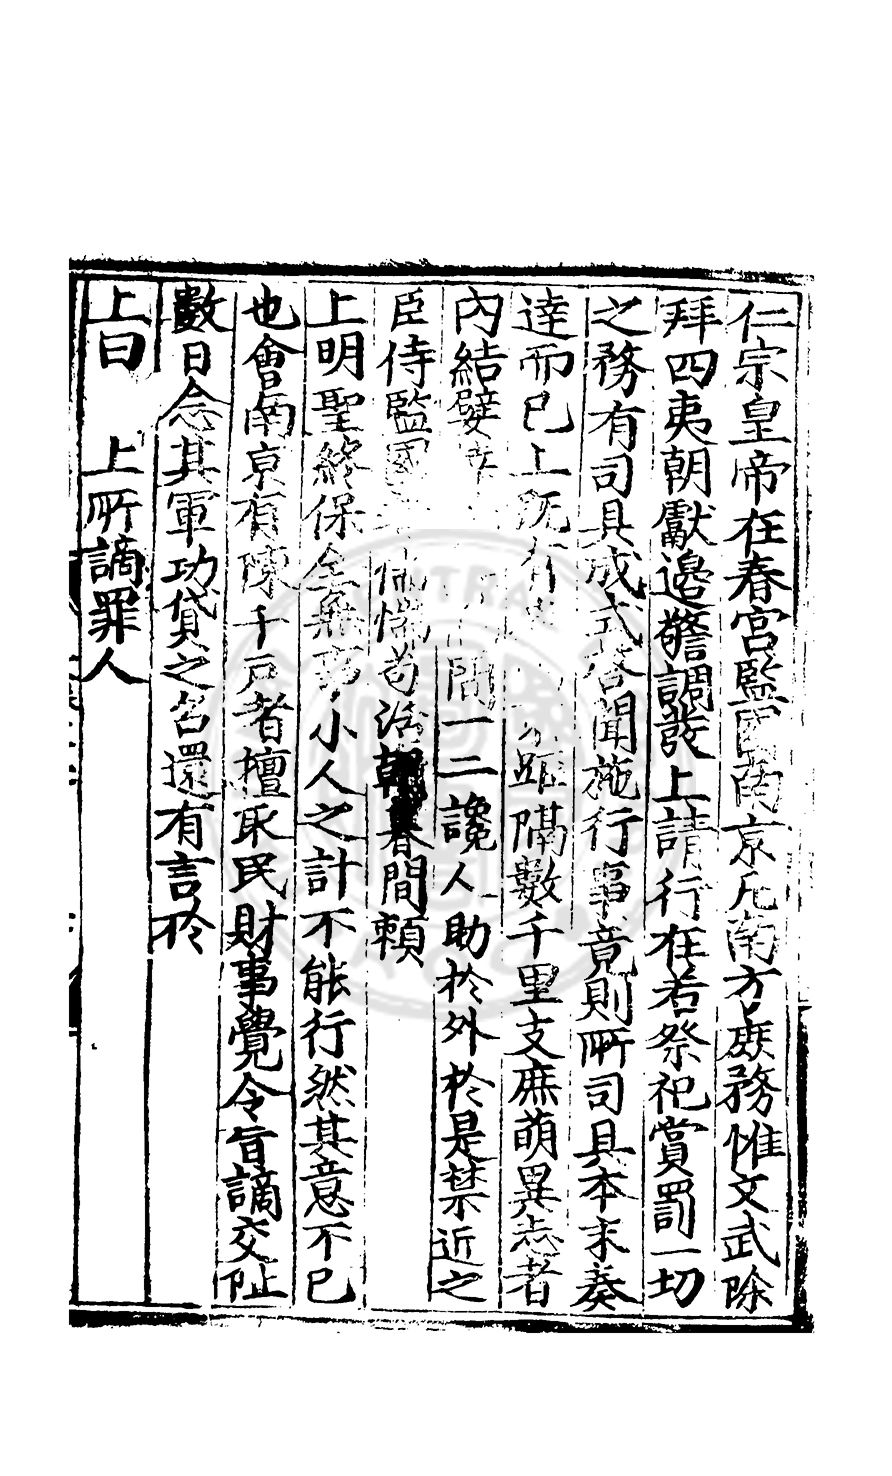 仁宗皇帝在春宮監國南京凡南方庶務惟文武除
拜四夷朝獻邊警調發上請行在若祭祀賞罰一切
之務有司具成式啓聞施行事竟則所司具本末奏
達而已上既有 距隔數千里支庶萌異志者
內結嬖 間一二讒人助於外於是禁近之
臣侍監國 惴惴苟活朝暮間賴
上明聖終保全無事小人之計不能行然其意不已
也會南京有陳千戶者擅取民財事覺令旨謫交阯
數日念其軍功貸之召還有言於
上曰 上所謫罪人